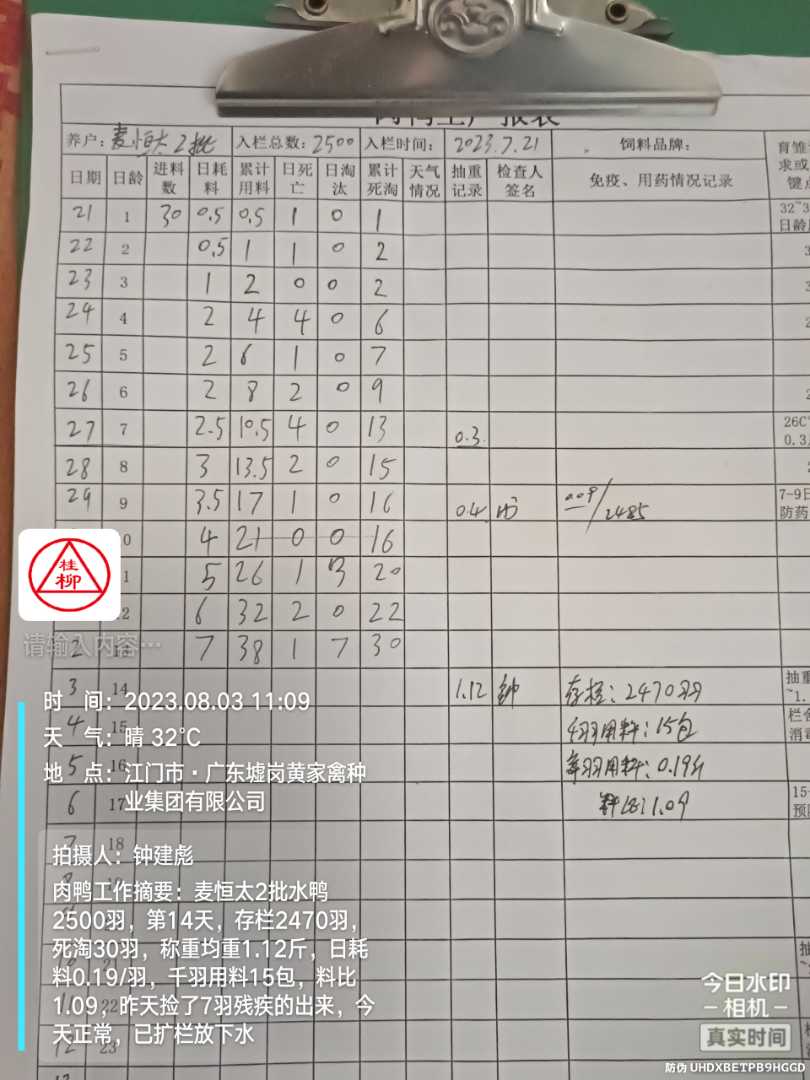 养户：麦恒太2批 入栏总数：2500 入栏时间：2023.7.21 饲料品牌：
日期 日龄 进料数 日耗料 累计用料 日死亡 日淘汰 累计死淘 天气情况 抽重记录 检查人签名 免疫、用药情况记录
21 1 30 0.5 0.5 1 0 1
22 2 0.5 1 1 0 2
23 3 1 2 0 0 2
24 4 2 4 4 0 6
25 5 2 6 1 0 7
26 6 2 8 2 0 9
27 7 2.5 10.5 4 0 13 0.3
28 8 3 13.5 2 0 15
29 9 3.5 17 1 0 16 0.4 2485
4 21 0 0 16
5 26 1 3 20
6 32 2 0 22
2 7 38 1 7 30
3 14 1.12 钟 存栏：2470羽
4 15 千羽用料：15包
5 16 每羽用料：0.19斤
6 17 料比：1.09
18
22
12 23
桂柳
请输入内容…
时 间：2023.08.03 11:09
天 气：晴 32℃
地 点：江门市·广东墟岗黄家禽种
业集团有限公司
拍摄人：钟建彪
肉鸭工作摘要：麦恒太2批水鸭
2500羽，第14天，存栏2470羽，
死淘30羽，称重均重1.12斤，日耗
料0.19/羽，千羽用料15包，料比
1.09，昨天捡了7羽残疾的出来，今
天正常，已扩栏放下水
今日水印
相机
真实时间
防伪 UHDXBETPB9HGGD